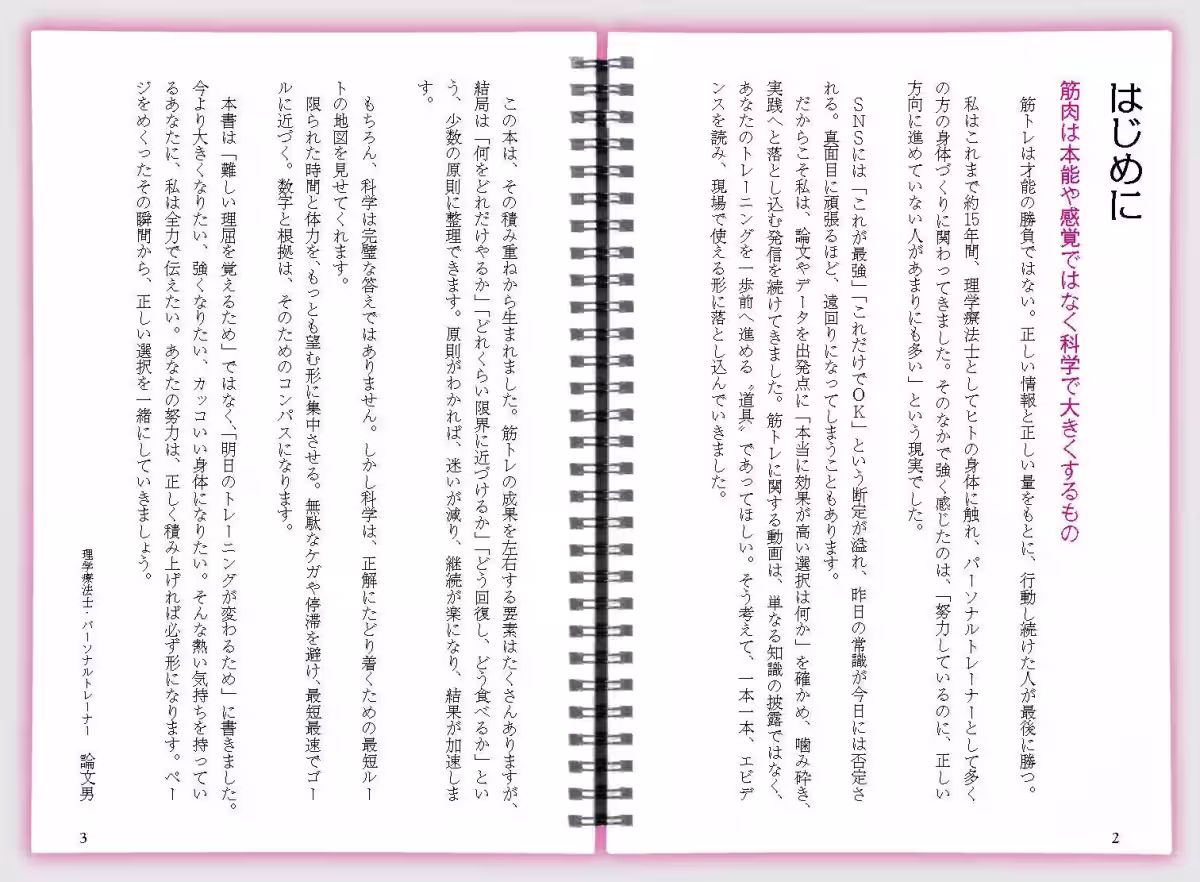 はじめに
筋肉は本能や感覚ではなく科学で大きくするもの
筋トレは才能の勝負ではない。正しい情報と正しい量をもとに、行動し続けた人が最後に勝つ。
私はこれまで約15年間、理学療法士としてヒトの身体に触れ、パーソナルトレーナーとして多く
の方の身体づくりに関わってきました。そのなかで強く感じたのは、「努力しているのに、正しい
方向に進めていない人があまりにも多い」という現実でした。
SNSには「これが最強」「これだけでOK」という断定が溢れ、昨日の常識が今日には否定さ
れる。真面目に頑張るほど、遠回りになってしまうこともあります。
だからこそ私は、論文やデータを出発点に「本当に効果が高い選択は何か」を確かめ、噛み砕き、
実践へと落とし込む発信を続けてきました。筋トレに関する動画は、単なる知識の披露ではなく、
あなたのトレーニングを一歩前へ進める〝道具〟であってほしい。そう考えて、一本一本、エビデ
ンスを読み、現場で使える形に落とし込んでいきました。
2
この本は、その積み重ねから生まれました。筋トレの成果を左右する要素はたくさんありますが、
結局は「何をどれだけやるか」「どれくらい限界に近づけるか」「どう回復し、どう食べるか」とい
う、少数の原則に整理できます。原則がわかれば、迷いが減り、継続が楽になり、結果が加速しま
す。
もちろん、科学は完璧な答えではありません。しかし科学は、正解にたどり着くための最短ルー
トの地図を見せてくれます。
限られた時間と体力を、もっとも望む形に集中させる。無駄なケガや停滞を避け、最短最速でゴー
ルに近づく。数字と根拠は、そのためのコンパスになります。
本書は「難しい理屈を覚えるため」ではなく、「明日のトレーニングが変わるため」に書きました。
今より大きくなりたい、強くなりたい、カッコいい身体になりたい。そんな熱い気持ちを持ってい
るあなたに、私は全力で伝えたい。あなたの努力は、正しく積み上げれば必ず形になります。ペー
ジをめくったその瞬間から、正しい選択を一緒にしていきましょう。
理学療法士・パーソナルトレーナー 論文男
3